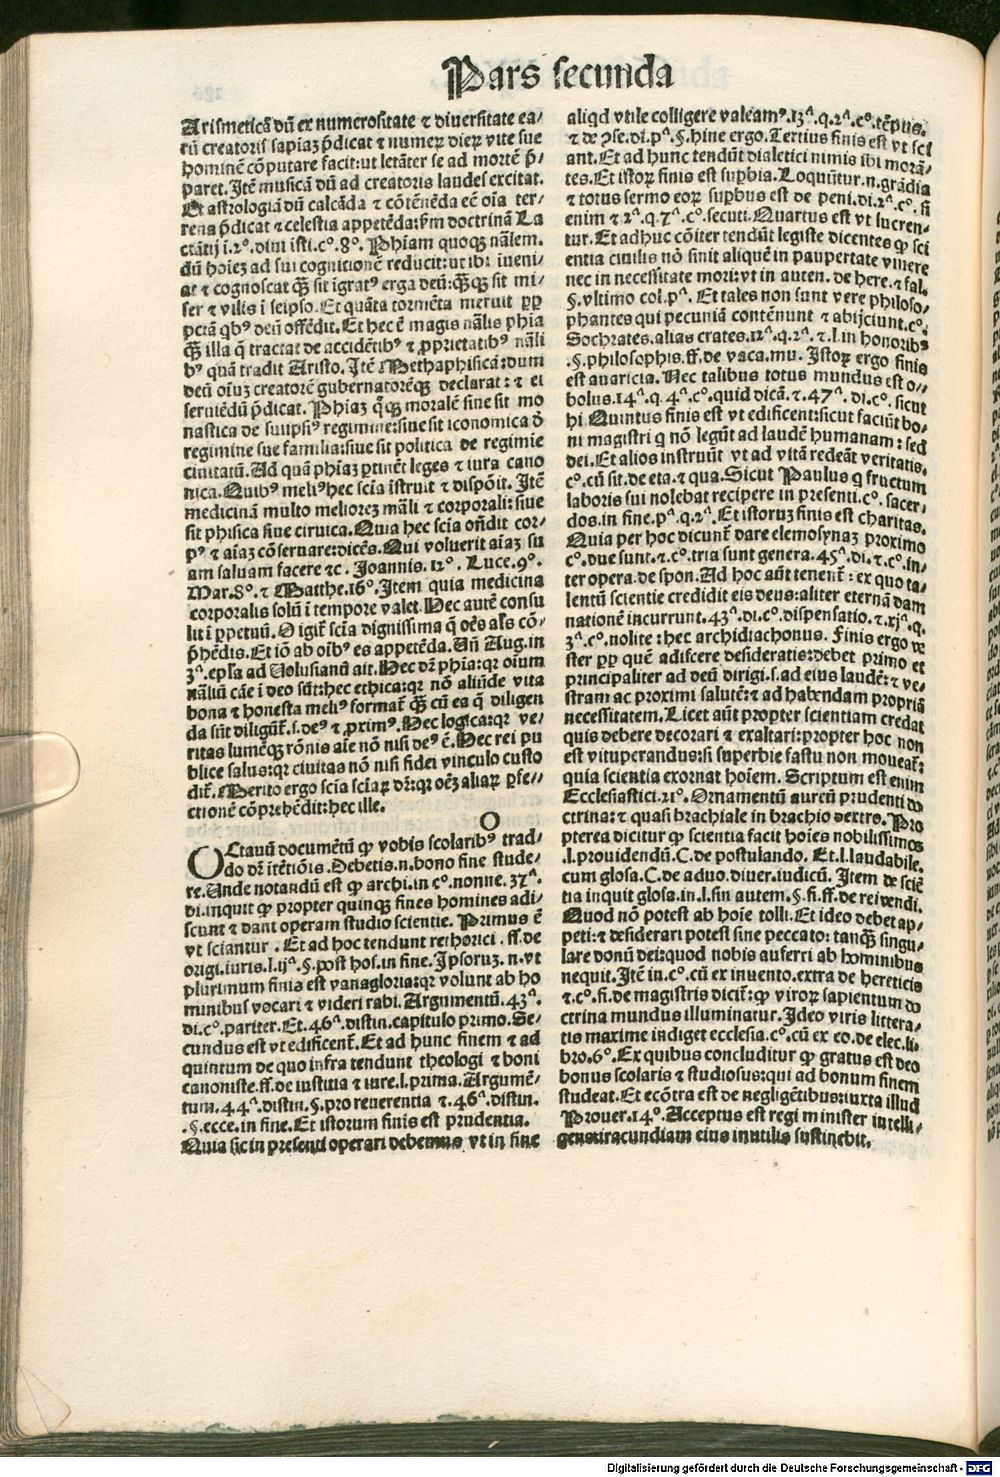 Pars secunda
Arismeticā dū ex numerositate ⁊ diuersitate ea⸗
rū creatoris sapiaꝫ p̄dicat ⁊ numeꝝ dieꝝ vite sue
hominē cōputare facit: ut letāter se ad mortē p̄⸗
paret. Itē musicā dū ad creatoris laudes excitat.
Et astrologiā dū calcāda ⁊ cōtēnēda eē oīa ter⸗
rena p̄dicat ⁊ celestia appetēda: ẜm doctrinā La
ctātij ī.2°. diui isti.c°.8°. Phīam quoqꝫ nālem.
dū hoiēꝫ ad sui cognitionē reducit: ut ibi iueni⸗
at ⁊ cognoscat q̄ꝫ sit īgratꝰ erga deū: q̄ꝫqꝫ sit mi⸗
ser ⁊ vilis ī seipso. Et quāta tormēta meruit ꝓꝑ
pctā qbꝰ deū offēdit. Et hec ē magis nālis phīa
q̄ꝫ illa q̄ tractat de accidētibꝰ ⁊ ꝓprietatibꝰ nāli
bꝰ quā tradit Aristo. Itē Methaphisicā: dum
deū oīuꝫ creatorē gubernatorēqꝫ declarat: ⁊ ei
seruiēdū p̄dicat. Phīaꝫ q̄qꝫ moralē siue sit mo
nastica de suiipsiꝰ regimine: siue sit iconomica d̄
regimine sue familia: siue sit politica de regimie
ciuitatū. Ad quā phīaꝫ ꝑtinēt leges ⁊ iura cano
nica. Quibꝰ meliꝰ hec scīa īstruit ⁊ dispōit. Itē
medicinā multo meliorēꝫ māli ⁊ corporali: siue
sit phisica siue cirurica. Quia hec scīa oñdit cor⸗
pꝰ ⁊ aīaꝫ cōseruare: dicēs. Qui voluerit aīaꝫ su
am saluam facere ⁊c. Joannis. 12°. Luce.9°.
Mar.8°. ⁊ Matthe.16°. Item quia medicina
corporalis solū ī tempore valet. Hec autē consu
lit ī ꝑpetuū. O igiť scīa dignissima q̄ oēs als̄ cō⸗
p̄hēdis. Et iō ab oībꝰ es appetēda. Uñ Aug. in
3ᵃ. epła ad Uolusianū ait. Hec dꝛ phīa: qꝛ oīum
nāliū cāe ī deo sūt: hec ethica: qꝛ nō aliūde vita
bona ⁊ honesta meliꝰ formať q̄ꝫ cū ea q̄ diligen
da sūt diligūť.s.deꝰ ⁊ ꝓximꝰ. Hec logica: qꝛ ve⸗
ritas lumēqꝫ rōnis aīe nō nisi deꝰ ē. Hec rei pu
blice salus: qꝛ ciuitas nō nisi fidei vinculo custo
diť. Merito ergo scīa sciaꝝ dꝛ: qꝛ oēꝫ aliaꝝ ꝑfe⸗
ctionē cōprehēdit: hec ille.
O
OCtauū documētū ꝙ vobis scolaribꝰ trad⸗
do dꝛ ītētiōis. Debetis.n.bono fine stude⸗
re. Unde notandū est ꝙ archi.in c°.nonne.37ᵃ.
di.inquit ꝙ propter quinqꝫ fines homines adi⸗
scunt ⁊ dant operam studio scientie. Primus ē
vt sciantur. Et ad hoc tendunt rethorici. ff.de
origi.iuris.l.ijᵃ.§.post hos.in fine. Ipsoruꝫ.n.vt
plurimum finis est vanagloria: qꝛ volunt ab ho
minibus vocari ⁊ videri rabi. Argumentū.43ᵃ.
di.c°.pariter. Et.46ᵃ.distin.capitulo primo. Se⸗
cundus est vt edificenť. Et ad hunc finem ⁊ ad
quintum de quo infra tendunt theologi ⁊ boni
canoniste.ff.de iustitia ⁊ iure.l.prima. Argumē⸗
tum.44ᵃ.distin.§.pro reuerentia ⁊.46ᵃ.distin.
.§.ecce.in fine. Et istorum finis est prudentia.
Quia sic in presenti operari debemus vt in fine
aliqd vtile colligere valeamꝰ.13ᵃ.q.2ᵃ.c°.tēpus.
⁊ de ꝯse.di.pᵃ.§.hinc ergo. Tertius finis est vt sci
ant. Et ad hunc tendūt dialetici nimis ibi morā⸗
tes. Et istoꝝ finis est suꝑbia. Loquūtur.n.grādia
⁊ totus sermo eoꝝ suꝑbus est de peni.di.2ᵃ.c°.si
enim ⁊ 2ᵃ.q.7ᵃ.c°.secuti. Quartus est vt lucren⸗
tur. Et adhuc cōiter tendūt legiste dicentes ꝙ sci
entia ciuilis nō sinit aliquē in paupertate viuere
nec in necessitate mori: vt in auten.de here.⁊ fal.
§.vltimo col.pᵃ. Et tales non sunt vere philoso⸗
phantes qui pecuniā contēnunt ⁊ abijciunt.c°.
Sochrates.alias crates.12ᵃ.q.2ᵃ.⁊.l.in honoribꝰ
.§.philosophis.ff.de vaca.mu. Istoꝝ ergo finis
est auaricia. Nec talibus totus mundus est o⸗
bolus.14ᵃ.q.4ᵃ.c°.quid dicā.⁊.47ᵃ.di.c°.sicut
hi Quintus finis est vt edificent: sicut faciūt bo⸗
ni magistri q nō legūt ad laudē humanam: sed
dei. Et alios instruūt vt ad vitā redeāt veritatis.
c°.cū sit.de eta.⁊ qua. Sicut Paulus q fructum
laboris sui nolebat recipere in presenti.c°.sacer⸗
dos.in fine.pᵃ.q.2ᵃ. Et istoruꝫ finis est charitas.
Quia per hoc dicunť dare elemosynaꝫ proximo
c°.due sunt.⁊.c°.tria sunt genera.45ᵃ.di.⁊.c°.in⸗
ter opera.de spon. Ad hoc aūt tenenť: ex quo ta⸗
lentū scientie credidit eis deus: aliter eternā dam
nationē incurrunt.43ᵃ.di.c°.dispensatio.⁊.xjᵃ.q.
3ᵃ.c°.nolite: hec archidiachonus. Finis ergo ve
ster ꝓꝑ quē adiscere desideratis: debet primo et
principaliter ad deū dirigi.s.ad eius laudē: ⁊ ve⸗
stram ac proximi salutē: ⁊ ad habendam propriā
necessitatem. Licet aūt propter scientiam credat
quis debere decorari ⁊ exaltari: propter hoc non
est vituperandus: si superbie fastu non moueať:
quia scientia exornat hoīem. Scriptum est enim
Ecclesiastici.21°. Ornamentū aureū prudenti do
ctrina: ⁊ quasi brachiale in brachio dextro. Pro
pterea dicitur ꝙ scientia facit hoīes nobilissimos
.l.prouidendū.C.de postulando. Et.l.laudabile.
cum glosa.C.de aduo.diuer.iudicū. Item de sciē
tia inquit glosa.in.l.fin autem.§.fi.ff.de rei vendi.
Quod nō potest ab hoīe tolli. Et ideo debet ap⸗
peti: ⁊ desiderari potest sine peccato: tanq̄ꝫ singu⸗
lare donū dei: quod nobis auferri ab hominibus
nequit. Itē in.c°.cū ex inuento.extra de hereticis
⁊.c°.fi.de magistris diciť: ꝙ viroꝝ sapientum do
ctrina mundus illuminatur. Ideo viris littera⸗
tis maxime indiget ecclesia.c°.cū ex eo.de elec.li⸗
bro.6°. Ex quibus concluditur ꝙ gratus est deo
bonus scolaris ⁊ studiosus: qui ad bonum finem
studeat. Et ecōtra est de negligētibus: iuxta illud
Prouer.14°. Acceptus est regi minister intelli⸗
gens: iracundiam eius inutilis sustinebit.
Digitalisierung gefördert durch die Deutsche Forschungsgemeinschaft - DFG